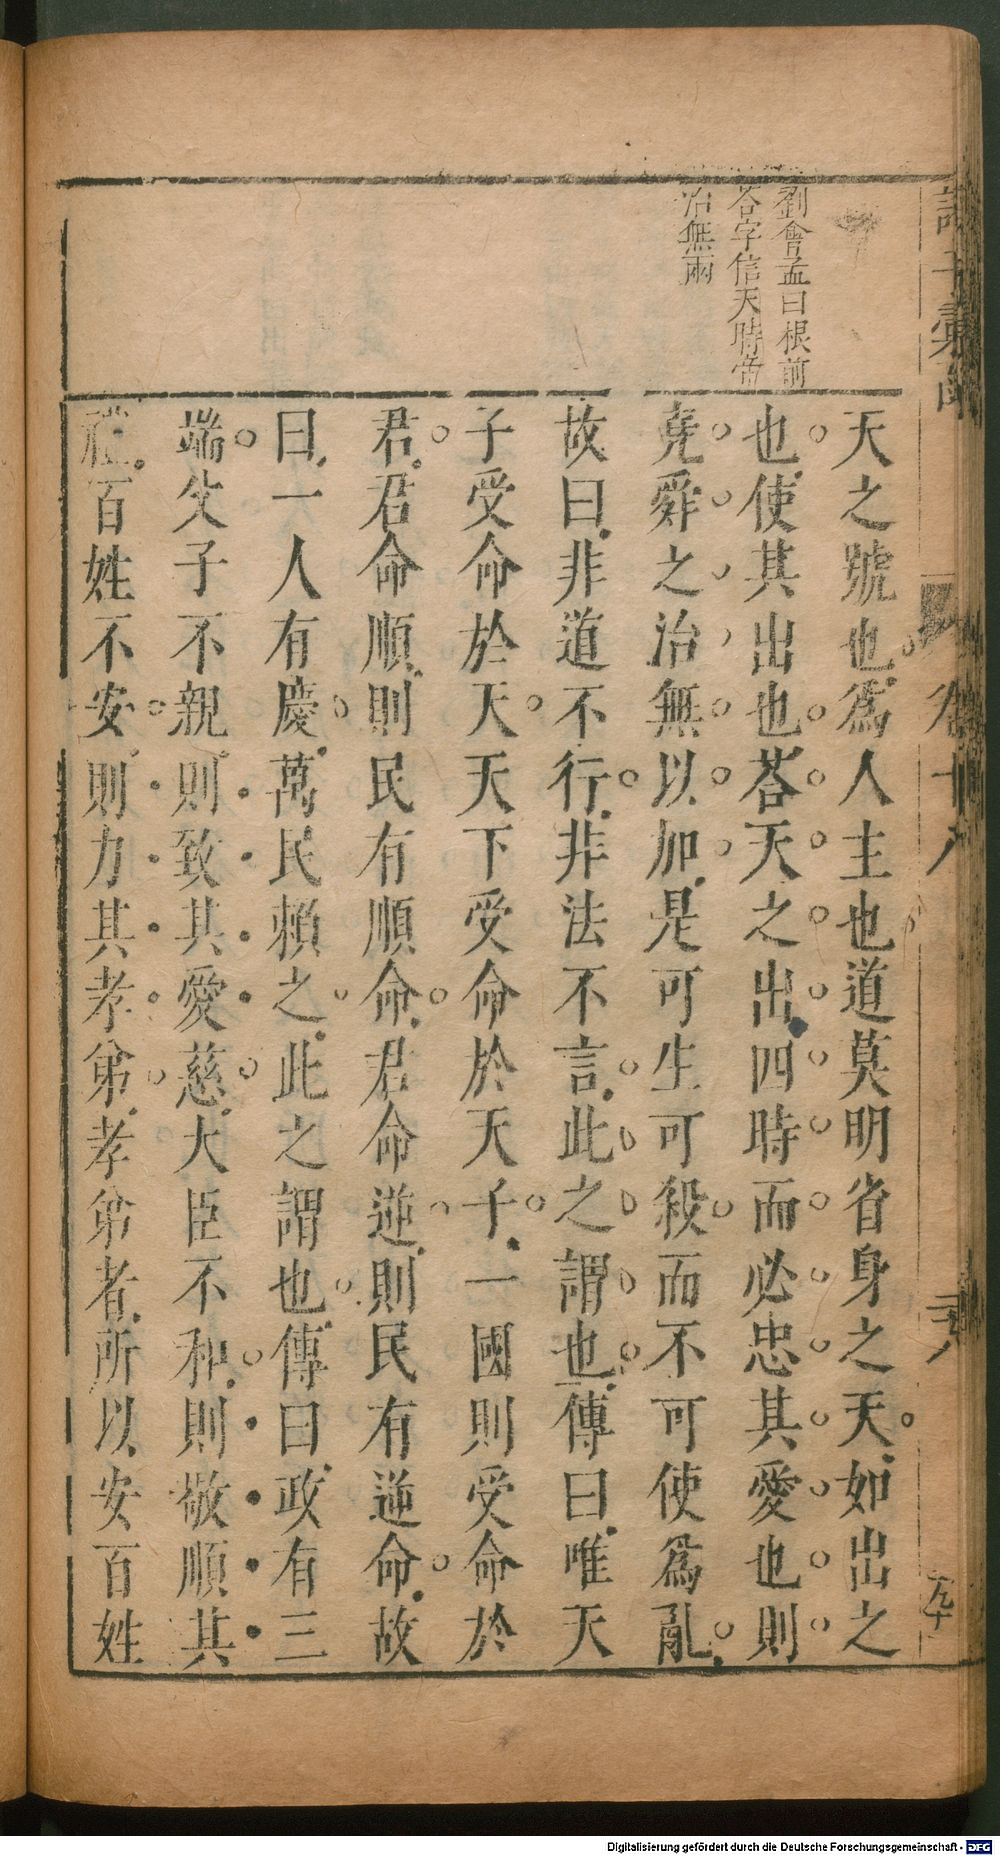 劉會孟曰根前
荅字信天時帝
治無兩
天之號也爲人主也道莫明省身之天如出之
也使其出也荅天之出四時而必忠其愛也則
堯舜之治無以加是可生可殺而不可使爲亂
故曰非道不行非法不言此之謂也傳曰唯天
子受命於天天下受命於天子一國則受命於
君君命順則民有順命君命逆則民有逆命故
曰一人有慶萬民賴之此之謂也傳曰政有三
端父子不親則致其愛慈大臣不和則敬順其
禮百姓不安則力其孝弟孝弟者所以安百姓
卷十八
Digitalisierung gefördert durch die Deutsche Forschungsgemeinschaft - DFG